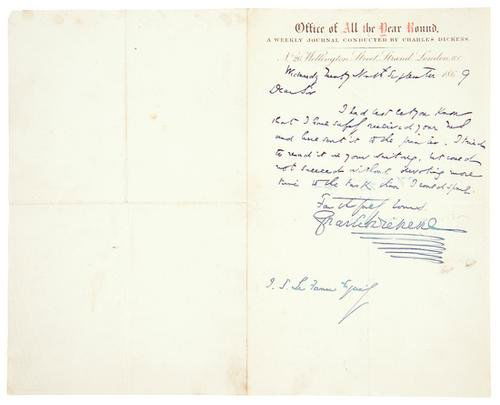 Office of All the Year Round,
A WEEKLY JOURNAL CONDUCTED BY CHARLES DICKENS.
No 26, Wellington Street, Strand, London, W.C.
Wednesday Twenty Ninth September 1869
Dear Sir
I had best let you know
that I have safely received your
and have sent it to the printer. I tried
to read it in your writing, but could
not succeed without devoting more
time to the task than I could spare
Faithfully Yours
Charles Dickens
J. S. Le Fanu Esquire